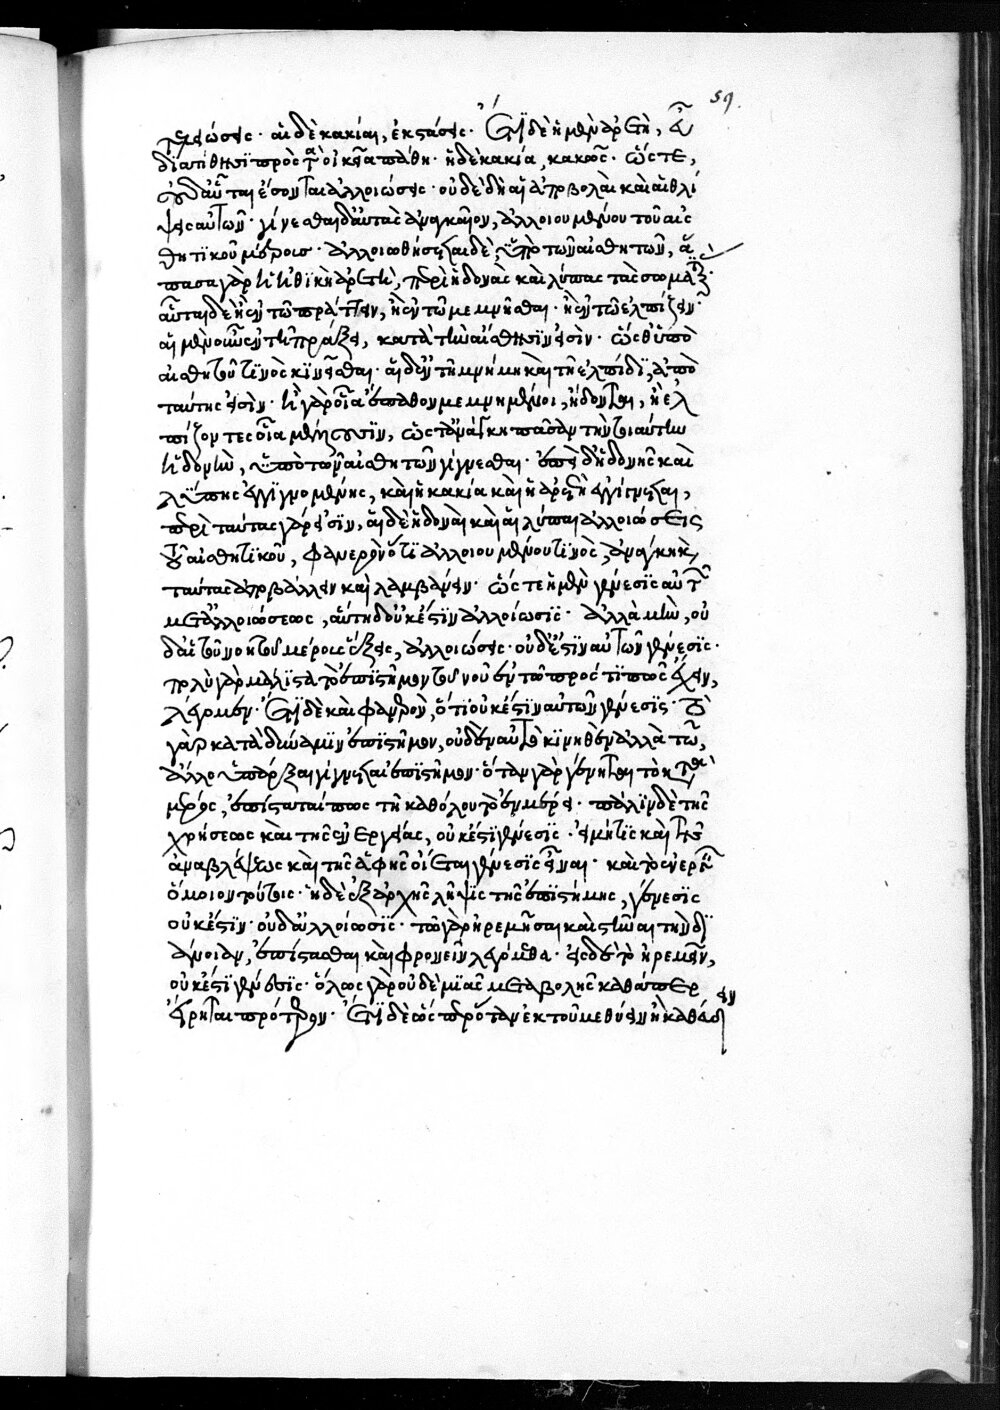 59.
τελειώσεις· αἱ δὲ κακίαι, ἐκστάσεις· Ἔτι δὲ ἡ μὲν ἀρετὴ, εὖ
διατίθησι πρὸς τὰ οἰκεῖα πάθη· ἡ δὲ κακία, κακῶς· ὥστε,
οὐδ' αὗται ἔσονται ἀλλοιώσεις· οὐδὲ δὴ αἱ ἀποβολαὶ καὶ αἱ θλί
ψεις αὐτῶν· γίνεσθαι δ' αὐτὰς ἀναγκαῖον, ἀλλοιουμένου τοῦ αἰσ
θητικοῦ μέρους· ἀλλοιωθήσεται δὲ, ὑπὸ τῶν αἰσθητῶν, ἅ
πασα γὰρ ἡ ἠθικὴ ἀρετὴ, περὶ ἡδονὰς καὶ λύπας τὰς σωματικάς·
αὗται δὲ ἢ ἐν τῷ πράττειν, ἢ ἐν τῷ μεμνῆσθαι· ἢ ἐν τῷ ἐλπίζειν·
αἱ μὲν οὖν ἐν τῇ πράξει, κατὰ τὴν αἴσθησιν εἰσὶν· ὥσθ' ὑπὸ
αἰσθητοῦ τινὸς κινεῖσθαι· αἱ δ' ἐν τῇ μνήμῃ καὶ τῇ ἐλπίδι, ἀπὸ
ταύτης εἰσὶν· ἢ γὰρ οἷα ἔπαθον μεμνημένοι, ἥδονται, ἢ ἐλ
πίζοντες οἷα μέλλουσιν, ὥστ' ἀνάγκη πᾶσαν τὴν τοιαύτην
ἡδονὴν, ὑπὸ τῶν αἰσθητῶν γίγνεσθαι· ἐπεὶ δ' ἡδονῆς καὶ
λύπης ἐγγιγνομένης, καὶ ἡ κακία καὶ ἡ ἀρετὴ ἐγγίγνεται,
περὶ ταύτας γάρ εἰσιν, αἱ δὲ ἡδοναὶ καὶ αἱ λύπαι ἀλλοιώσεις
τοῦ αἰσθητικοῦ, φανερὸν ὅτι ἀλλοιουμένου τινὸς, ἀνάγκη καὶ
ταύτας ἀποβάλλειν καὶ λαμβάνειν· ὥστε ἡ μὲν γένεσις αὐτῶν
μετ' ἀλλοιώσεως, αὕτη δ' οὐκ ἔστιν ἀλλοίωσις· ἀλλὰ μὴν, οὐ
δ' αἱ τοῦ νοητοῦ μέρους ἕξεις, ἀλλοιώσεις· οὐδ' ἔστιν αὐτῶν γένεσις·
πολὺ γὰρ μάλιστα τὸ ἐπιστῆμον τοῦ νοῦ ἐν τῷ πρός τί πως ἔχειν,
λέγομεν· Ἔτι δὲ καὶ φανερὸν, ὅτι οὐκ ἔστιν αὐτῶν γένεσις· τὸ
γὰρ κατὰ δύναμιν ἐπιστῆμον, οὐδὲν αὐτὸ κινηθὲν ἀλλὰ τῷ,
ἄλλο ὑπάρξαι γίγνεται ἐπιστῆμον· ὅταν γὰρ γένηται τὸ κατὰ
μέρος, ἐπίσταταί πως τῇ καθόλου τὸ ἐν μέρει· πάλιν δὲ τῆς
χρήσεως καὶ τῆς ἐνεργείας, οὐκ ἔστι γένεσις· εἰ μή τις καὶ τῆς
ἀναβλέψεως καὶ τῆς ἁφῆς οἴεται γένεσις εἶναι· καὶ τὸ ἐνεργεῖν
ὅμοιον τούτοις· ἡ δὲ ἐξ ἀρχῆς λῆψις τῆς ἐπιστήμης, γένεσις
οὐκ ἔστιν· οὐδ' ἀλλοίωσις· τῷ γὰρ ἠρεμῆσαι καὶ στῆναι τὴν δι
άνοιαν, ἐπίστασθαι καὶ φρονεῖν λεγόμεθα· εἰς δὲ τὸ ἠρεμεῖν,
οὐκ ἔστι γένεσις· ὅλως γὰρ οὐδεμιᾶς μεταβολῆς καθάπερ
εἴρηται πρότερον· Ἔτι δὲ ὥσπερ ὅταν ἐκ τοῦ μεθύειν ἢ καθεύδειν